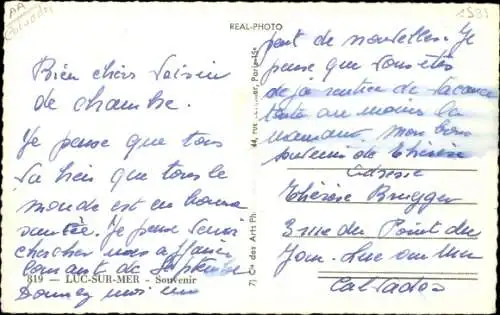 AA
Calvados
REAL-PHOTO
Bien chers Voisin
de chambre.
Je pense que tous
va bien que tous le
monde est en bonne
santée. Je pense venir
chercher mes affaires
courant de Septembre
Donnez moi un
819 — LUC-SUR-MER - Souvenir
peut de nouvelles. Je
pense que vous êtes
déjà rentier de vacance
toute au moins la
maman. Mon bon
souvenir de Thérèse
Adresse
Thérèse Brugger
3 rue du Point du
Jour. Luc sur Mer
Calvados